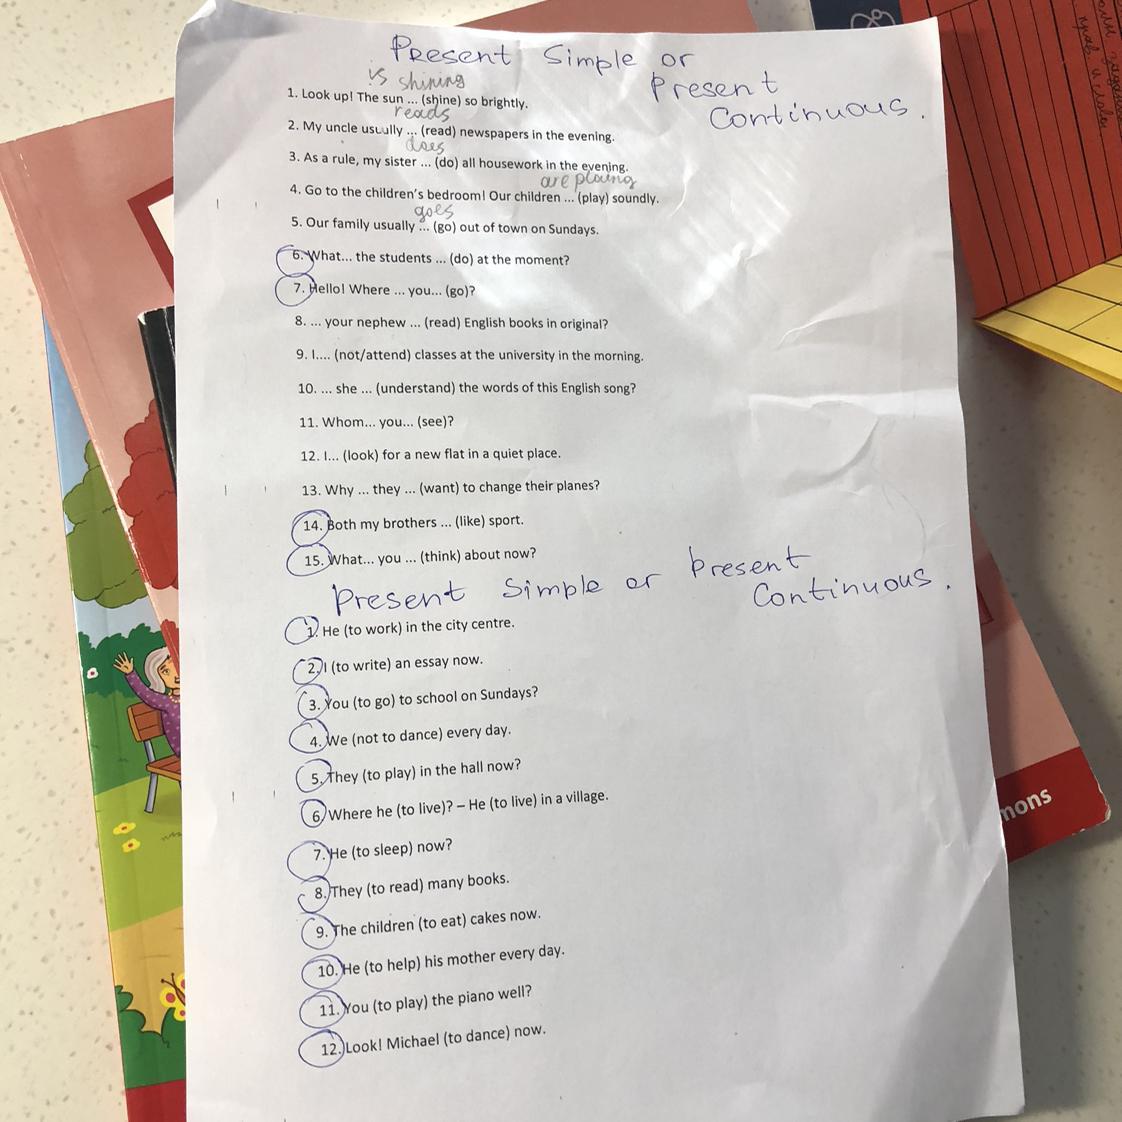 Present Simple or
Present
Continuous.
is shining
1. Look up! The sun ... (shine) so brightly.
reads
2. My uncle usually ... (read) newspapers in the evening.
does
3. As a rule, my sister ... (do) all housework in the evening.
are plaing
4. Go to the children's bedroom! Our children ... (play) soundly.
goes
5. Our family usually ... (go) out of town on Sundays.
6. What... the students ... (do) at the moment?
7. Hello! Where ... you... (go)?
8. ... your nephew ... (read) English books in original?
9. I.... (not/attend) classes at the university in the morning.
10. ... she ... (understand) the words of this English song?
11. Whom... you... (see)?
12. I... (look) for a new flat in a quiet place.
13. Why ... they ... (want) to change their planes?
14. Both my brothers ... (like) sport.
15. What... you ... (think) about now?
Present Simple or Present
Continuous.
1. He (to work) in the city centre.
2. I (to write) an essay now.
3. You (to go) to school on Sundays?
4. We (not to dance) every day.
5. They (to play) in the hall now?
6. Where he (to live)? – He (to live) in a village.
7. He (to sleep) now?
8. They (to read) many books.
9. The children (to eat) cakes now.
10. He (to help) his mother every day.
11. You (to play) the piano well?
12. Look! Michael (to dance) now.
mons